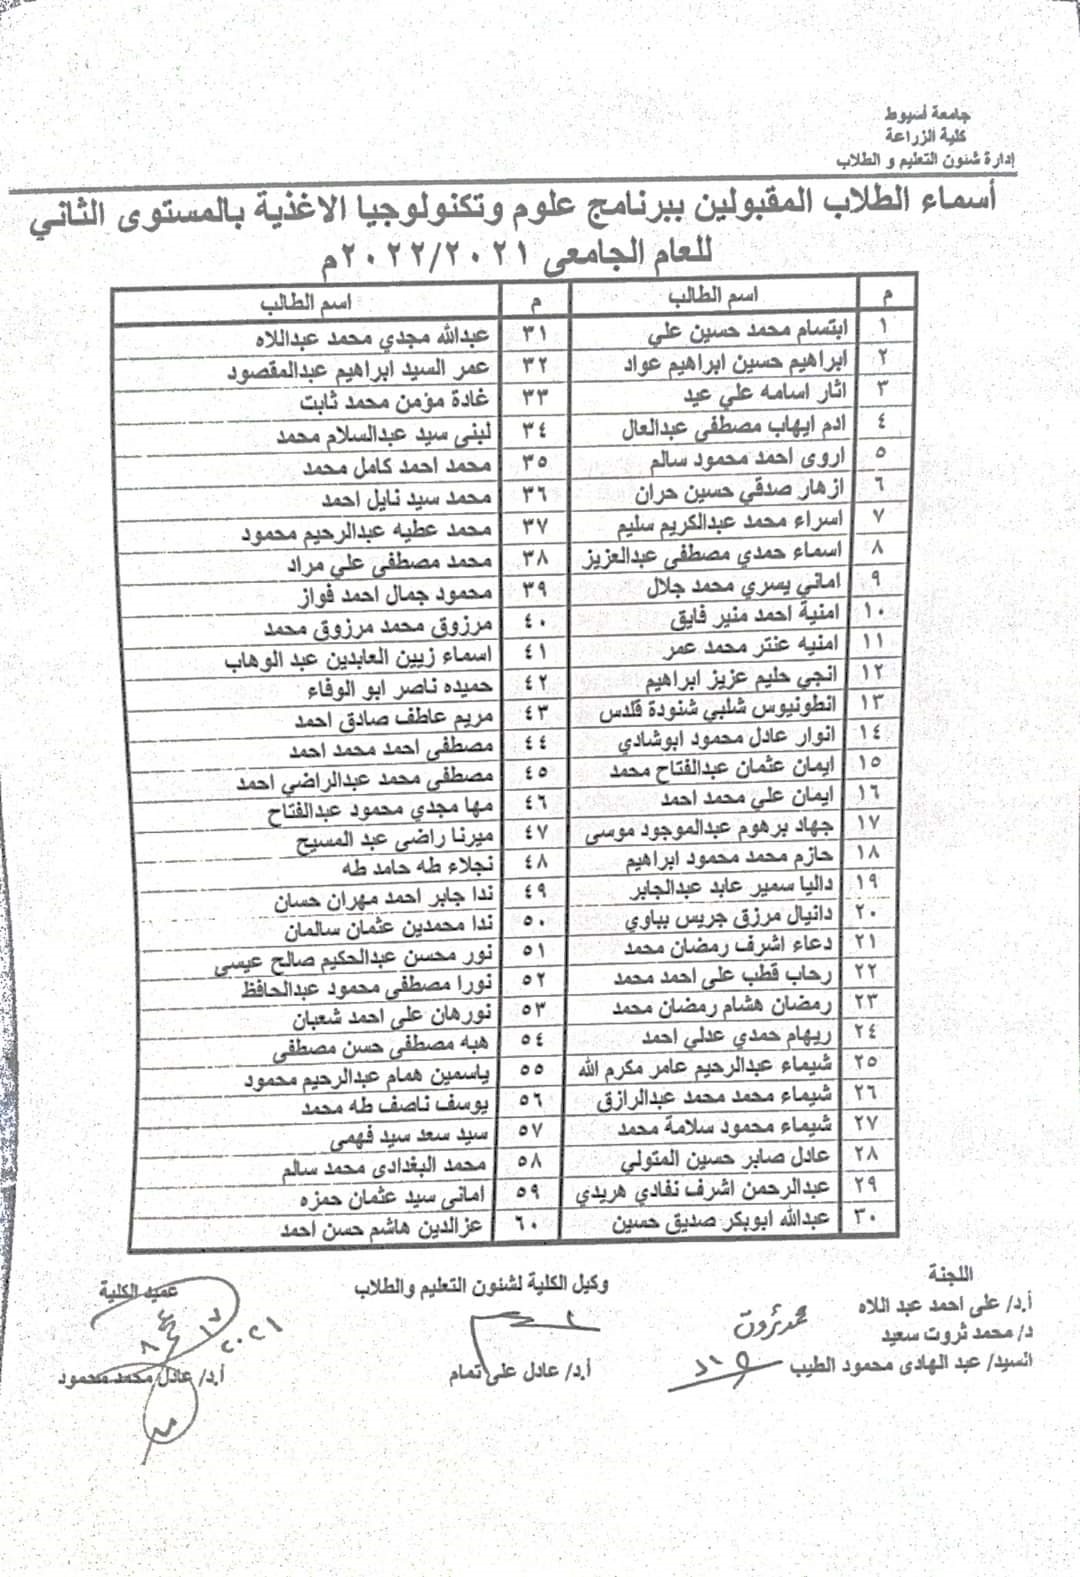 جامعة أسيوط
كلية الزراعة
إدارة شئون التعليم و الطلاب
أسماء الطلاب المقبولين ببرنامج علوم وتكنولوجيا الاغذية بالمستوى الثاني
للعام الجامعى ٢٠٢٢/٢٠٢١م
م اسم الطالب م اسم الطالب
١ ابتسام محمد حسين علي ٣١ عبدالله مجدي محمد عبداللاه
٢ ابراهيم حسين ابراهيم عواد ٣٢ عمر السيد ابراهيم عبدالمقصود
٣ اثار اسامه علي عيد ٣٣ غادة مؤمن محمد ثابت
٤ ادم ايهاب مصطفى عبدالعال ٣٤ لبنى سيد عبدالسلام محمد
٥ اروى احمد محمود سالم ٣٥ محمد احمد كامل محمد
٦ ازهار صدقي حسين حران ٣٦ محمد سيد نايل احمد
٧ اسراء محمد عبدالكريم سليم ٣٧ محمد عطيه عبدالرحيم محمود
٨ اسماء حمدي مصطفى عبدالعزيز ٣٨ محمد مصطفى علي مراد
٩ اماني يسري محمد جلال ٣٩ محمود جمال احمد فواز
١٠ امنية احمد منير فايق ٤٠ مرزوق محمد مرزوق محمد
١١ امنيه عنتر محمد عمر ٤١ اسماء زيين العابدين عبد الوهاب
١٢ انجي حليم عزيز ابراهيم ٤٢ حميده ناصر ابو الوفاء
١٣ انطونيوس شلبي شنودة قلدس ٤٣ مريم عاطف صادق احمد
١٤ انوار عادل محمود ابوشادي ٤٤ مصطفى احمد محمد احمد
١٥ ايمان عثمان عبدالفتاح محمد ٤٥ مصطفى محمد عبدالراضي احمد
١٦ ايمان علي محمد احمد ٤٦ مها مجدي محمود عبدالفتاح
١٧ جهاد برهوم عبدالموجود موسى ٤٧ ميرنا راضى عبد المسيح
١٨ حازم محمد محمود ابراهيم ٤٨ نجلاء طه حامد طه
١٩ داليا سمير عابد عبدالجابر ٤٩ ندا جابر احمد مهران حسان
٢٠ دانيال مرزق جريس بباوي ٥٠ ندا محمدين عثمان سالمان
٢١ دعاء اشرف رمضان محمد ٥١ نور محسن عبدالحكيم صالح عيسى
٢٢ رحاب قطب على احمد محمد ٥٢ نورا مصطفى محمود عبدالحافظ
٢٣ رمضان هشام رمضان محمد ٥٣ نورهان على احمد شعبان
٢٤ ريهام حمدي عدلي احمد ٥٤ هبه مصطفى حسن مصطفى
٢٥ شيماء عبدالرحيم عامر مكرم الله ٥٥ ياسمين همام عبدالرحيم محمود
٢٦ شيماء محمد محمد عبدالرازق ٥٦ يوسف ناصف طه محمد
٢٧ شيماء محمود سلامة محمد ٥٧ سيد سعد سيد فهمى
٢٨ عادل صابر حسين المتولي ٥٨ محمد البغدادى محمد سالم
٢٩ عبدالرحمن اشرف نفادي هريدي ٥٩ امانى سيد عثمان حمزه
٣٠ عبدالله ابوبكر صديق حسين ٦٠ عزالدين هاشم حسن احمد
اللجنة وكيل الكلية لشئون التعليم والطلاب عميد الكلية
أ.د/ على احمد عبد اللاه
د/ محمد ثروت سعيد محمد ثروت
السيد/ عبد الهادى محمود الطيب أ.د/ عادل على تمام أ.د/ عادل محمد محمود
٢٠٢١